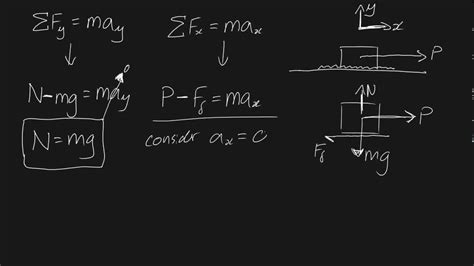 ΣF_y = ma_y
↓
N-mg = ma_y
0
N = mg
ΣF_x = ma_x
↓
P - F_f = ma_x
consider a_x = 0
y
x
P
N
P
F_f
mg